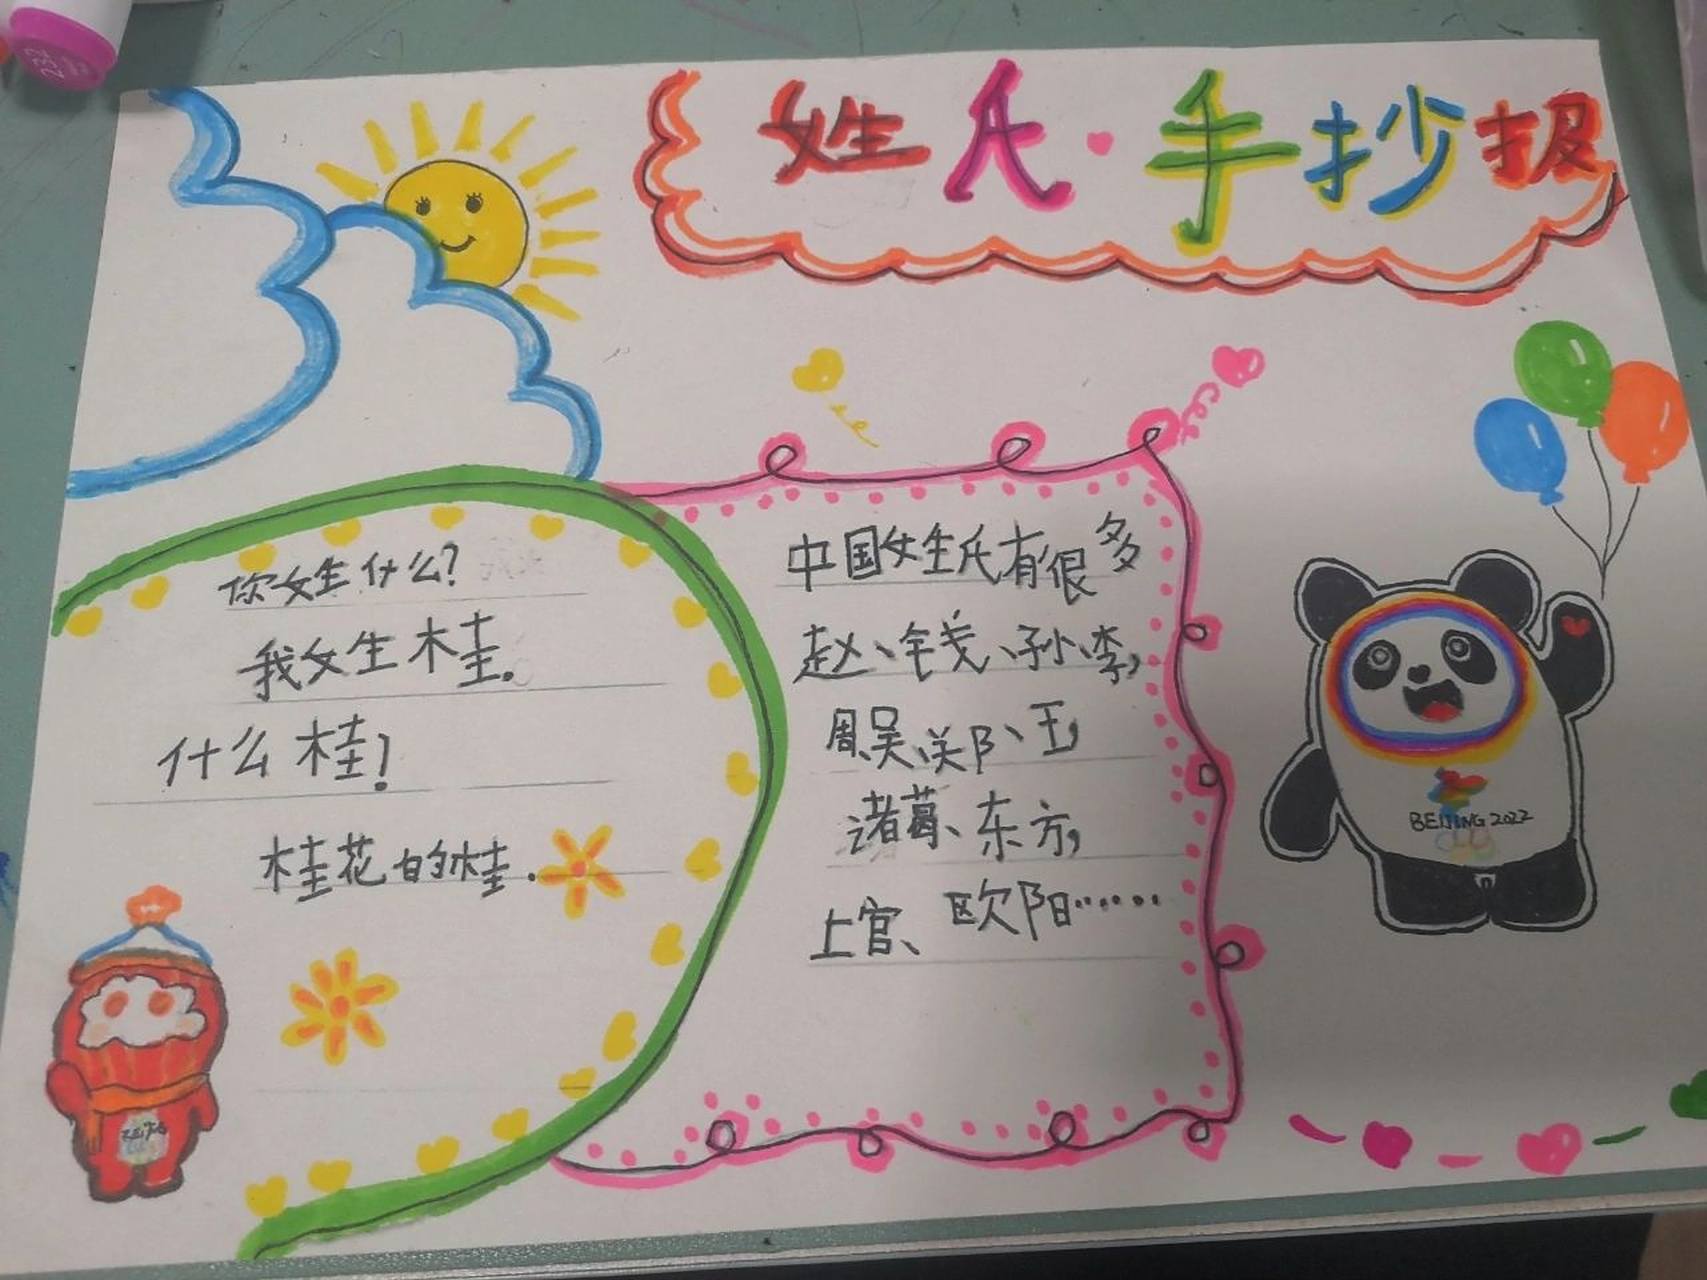 姓氏·手抄报
你姓什么?
我姓桂.
什么桂!
桂花的桂.
中国姓氏有很多
赵、钱、孙、李,
周、吴、关阝、王,
诸葛、东方,
上官、欧阳……
BEIJING 2022
232